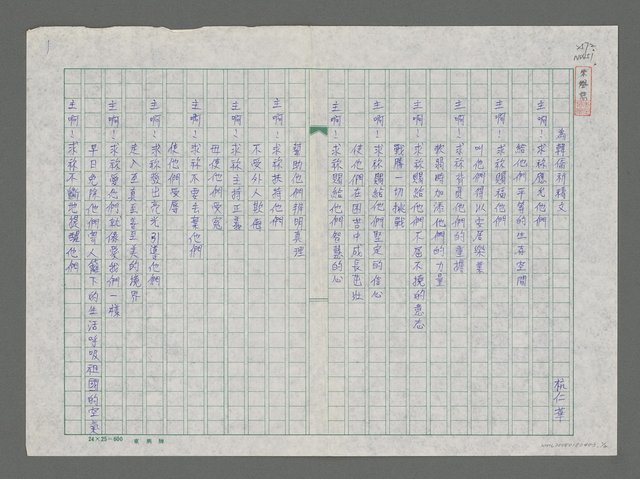 為韓僑祈禱文
杭仁華
主啊！求祢應允他們
給他們平等的生存空間
主啊！求祢賜福他們
叫他們得以安居樂業
主啊！求祢背負他們的重擔
軟弱時加添他們的力量
主啊！求祢賜給他們不屈不撓的意志
戰勝一切挑戰
主啊！求祢賜給他們堅定的信心
使他們在困苦中成長茁壯
主啊！求祢賜給他們智慧的心
幫助他們辨明真理
主啊！求祢扶持他們
不受外人欺侮
主啊！求祢主持正義
毋使他們受冤
主啊！求祢不要丟棄他們
使他們受辱
主啊！求祢發出亮光引導他們
走入至真至善至美的境界
主啊！求祢愛他們就像愛我們一樣
早日免除他們寄人籬下的生活呼吸祖國的空氣
主啊！求祢不斷地提醒他們
24×25=600